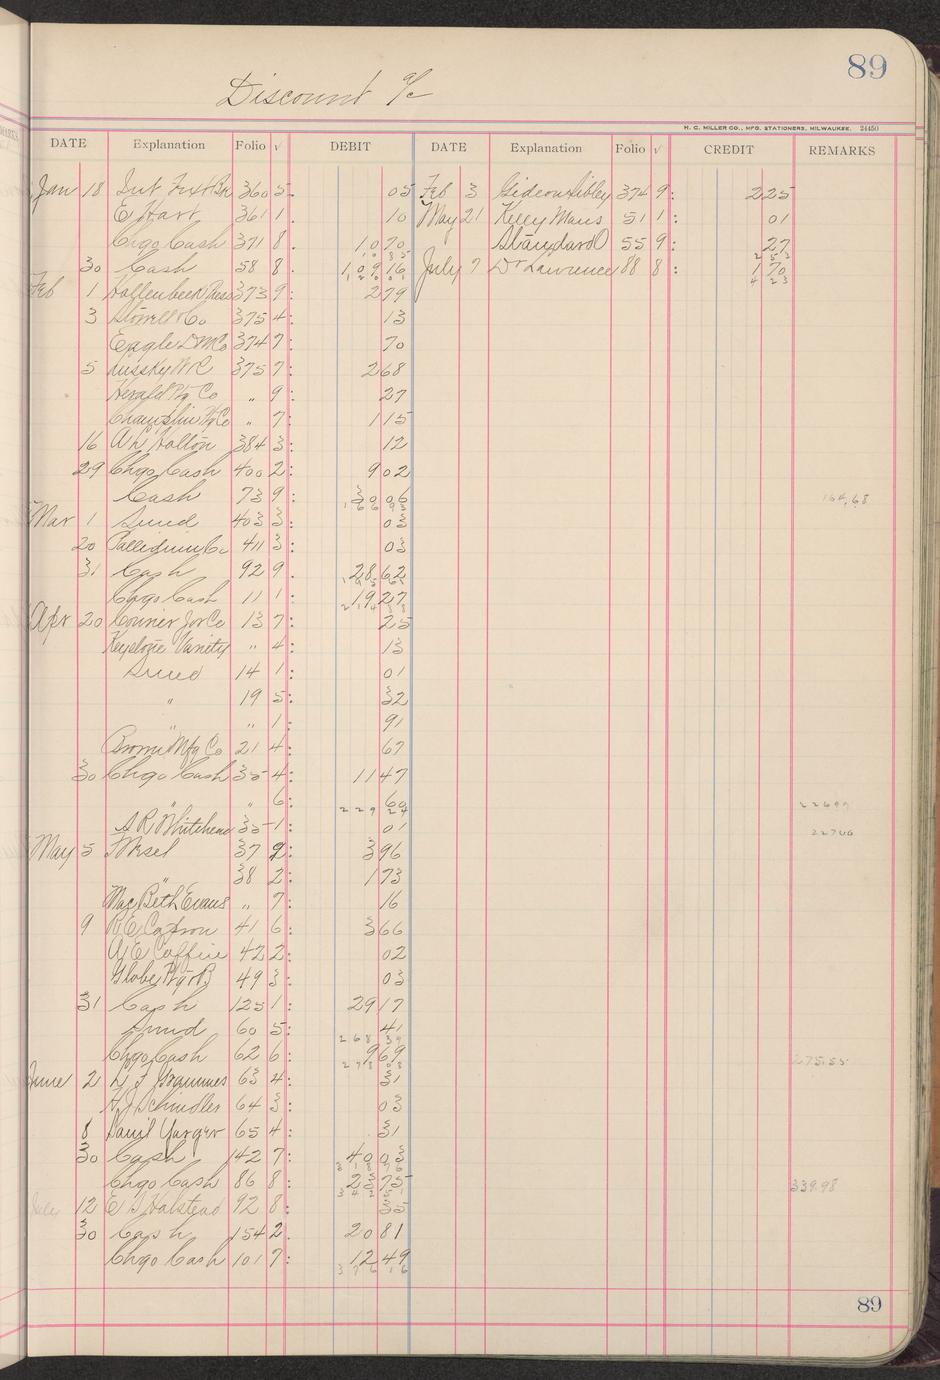 89
Discount a/c
H. C. MILLER CO., MFG. STATIONERS, MILWAUKEE. 24450
DATE Explanation Folio √ DEBIT DATE Explanation Folio √ CREDIT REMARKS
Jan 18 360 5. 05 Feb 3 Gideon Sibley 374 9: 2 25
E Hart 361 1 10 May 21 Kelly Maus 51 1: 01
Chgo Cash 371 8. 10 70 Standard O 55 9: 27
10 85 2 53
30 Cash 58 8. 109 16 July 7 Dr Lawrence 88 8: 1 70
120 01 4 23
Feb 1 Hollenbeck Press 373 9: 2 79
3 Storrell & Co 375 4: 13
Eagle 374 7: 70
5 375 7: 2 68
Herald Ptg Co " 9: 27
Champlin Ptg Co " 7: 1 15
16 A L Holton 384 3: 12
29 Chgo Cash 400 2: 9 02
Cash 73 9: 30 06 164.68
166 93
Mar 1 Sund 403 3: 03
20 Palledium Co 411 3: 03
31 Cash 92 9. 28 62
195 61
Chgo Cash 11 1: 19 27
214 88
Apr 20 Courier Jor Co 13 7: 25
Keystone Vanity " 4: 13
Sund 14 1: 01
" 19 5: 32
" " 1: 91
Mfg Co 21 4: 67
30 Chgo Cash 35 4: 11 47
" " 6: 60 22699
229 24
S R Whitehead 35 1: 01 22700
May 5 37 2: 3 96
" 38 2: 1 73
Mac Beth Evans " 7: 16
9 R E Capron 41 6: 3 66
A E Caffine 42 2: 02
Globe Ptg & B 49 3: 03
31 Cash 125 1: 29 17
Sund 60 5: 41
268 39
Chgo Cash 62 6: 9 69 275.55
278 08
June 2 L F Grammes 63 4: 31
H J Schindler 64 3: 03
8 Danil Yarger 65 4: 31
30 Cash 142 7: 40 03
318 76
Chgo Cash 86 8: 23 75 339.98
342 51
July 12 E S Halstead 92 8: 35
30 Cash 154 2. 20 81
Chgo Cash 101 7: 12 49
376 16
89